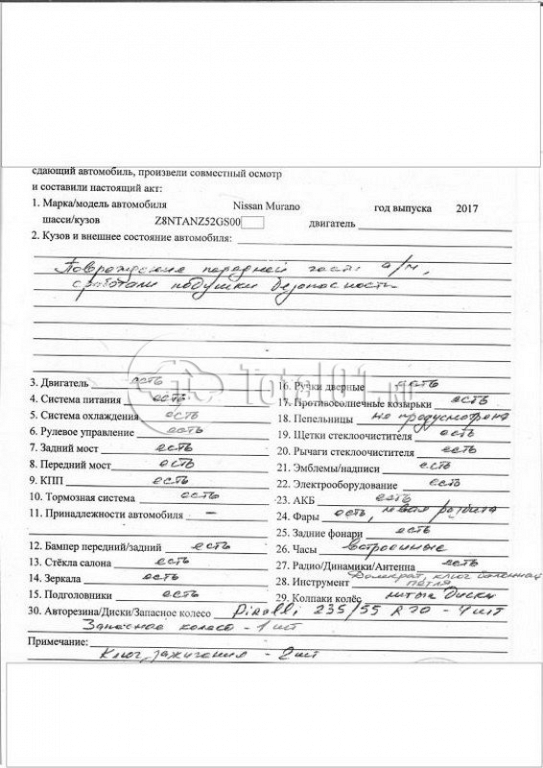 сдающий автомобиль, произвели совместный осмотр
и составили настоящий акт:
1. Марка/модель автомобиля Nissan Murano год выпуска 2017
шасси/кузов Z8NTANZ52GS00 двигатель
2. Кузов и внешнее состояние автомобиля:
Повреждения передней части а/м,
сработали подушки безопасности
3. Двигатель есть
4. Система питания есть
5. Система охлаждения есть
6. Рулевое управление есть
7. Задний мост есть
8. Передний мост есть
9. КПП есть
10. Тормозная система есть
11. Принадлежности автомобиля –
12. Бампер передний/задний есть
13. Стёкла салона есть
14. Зеркала есть
15. Подголовники есть
16. Ручки дверные есть
17. Противосолнечные козырьки есть
18. Пепельницы не предусмотрена
19. Щетки стеклоочистителя есть
20. Рычаги стеклоочистителя есть
21. Эмблемы/надписи есть
22. Электрооборудование есть
23. АКБ есть
24. Фары есть, левая разбита
25. Задние фонари есть
26. Часы встроенные
27. Радио/Динамики/Антенна есть
28. Инструмент Домкрат, ключ балонный
петля
29. Колпаки колёс литые диски
30. Авторезина/Диски/Запасное колесо Pirelli 235/55 R20 - 4шт
Запасное колесо - 1шт
Примечание:
Ключ зажигания - 2шт
Total01.ru